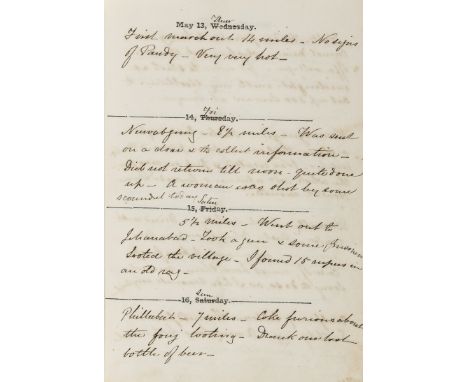 Thur
May 13, Wednesday.
First march out 14 miles - No signs
of Pandy - Very very hot -
Fri
14, Thursday.
Newabgung - 8½ miles - Was sent
on a to collect information -
Did not return till noon - quite done
up - A woman was shot by some
scoundrel
Satur
15, Friday.
5½ miles - Went out to
Jehanabad - Took a gun & some prisoners
Looted the village - I found 15 rupees in
an old rag -
Sun
16, Saturday.
Phillibeit - 7 miles - Coke furious about
the fouj looting - Drank our last
bottle of beer -